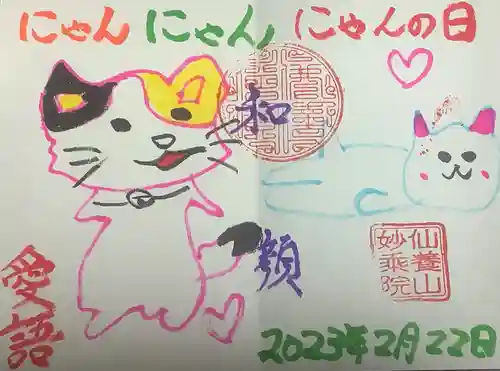 にゃん にゃん にゃんの日
和
顔
愛語
仙養山
妙乗院
2023年2月22日